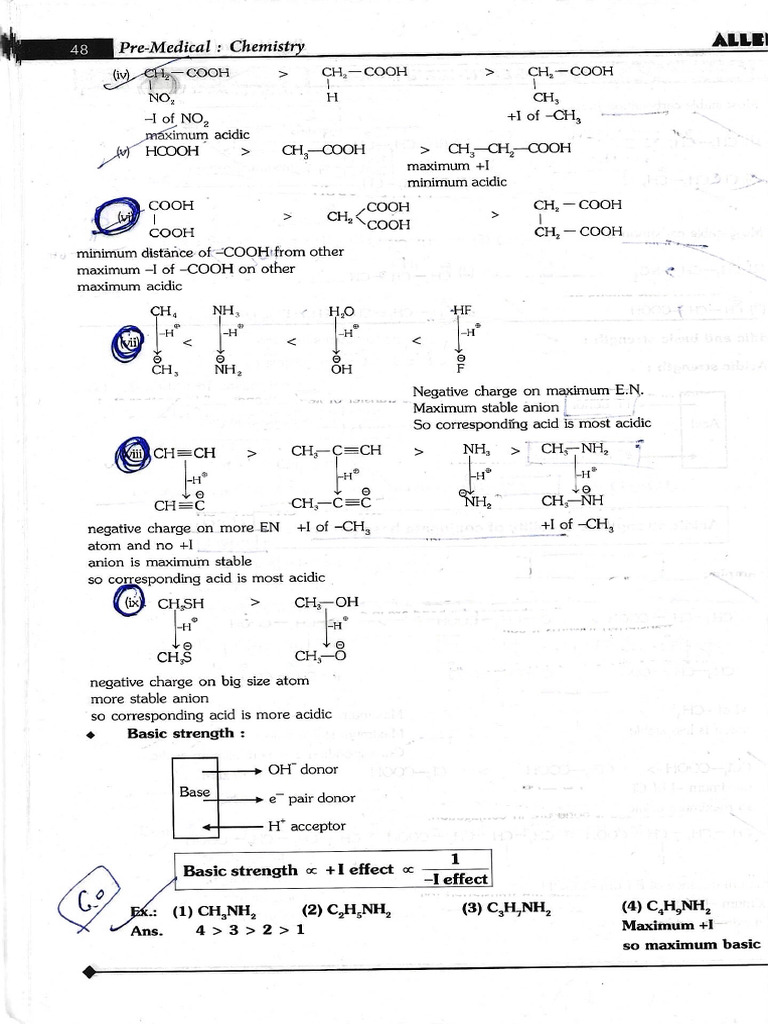 48 Pre-Medical : Chemistry ALLE
(iv) CH₂—COOH > CH₂—COOH > CH₂—COOH
NO₂ H CH₃
–I of NO₂ +I of –CH₃
maximum acidic
(v) HCOOH > CH₃—COOH > CH₃—CH₂—COOH
maximum +I
minimum acidic
(vi) COOH > CH₂ COOH > CH₂—COOH
COOH COOH CH₂—COOH
minimum distance of –COOH from other
maximum –I of –COOH on other
maximum acidic
(vii) CH₄ NH₃ H₂O HF
–H⊕ < –H⊕ < –H⊕ < –H⊕
CH₃⊖ NH₂⊖ OH⊖ F⊖
Negative charge on maximum E.N.
Maximum stable anion
So corresponding acid is most acidic
(viii) CH≡CH > CH₃—C≡CH > NH₃ > CH₃—NH₂
–H⊕ –H⊕ –H⊕ –H⊕
CH≡C⊖ CH₃—C≡C⊖ ⊖NH₂ CH₃—NH⊖
negative charge on more EN +I of –CH₃ +I of –CH₃
atom and no +I
anion is maximum stable
so corresponding acid is most acidic
(ix) CH₃SH > CH₃—OH
–H⊕ –H⊕
CH₃S⊖ CH₃—O⊖
negative charge on big size atom
more stable anion
so corresponding acid is more acidic
◆ Basic strength :
OH⁻ donor
Base e⁻ pair donor
H⁺ acceptor
Basic strength ∝ +I effect ∝ 1/–I effect
Ex.: (1) CH₃NH₂ (2) C₂H₅NH₂ (3) C₃H₇NH₂ (4) C₄H₉NH₂
Ans. 4 > 3 > 2 > 1 Maximum +I
so maximum basic